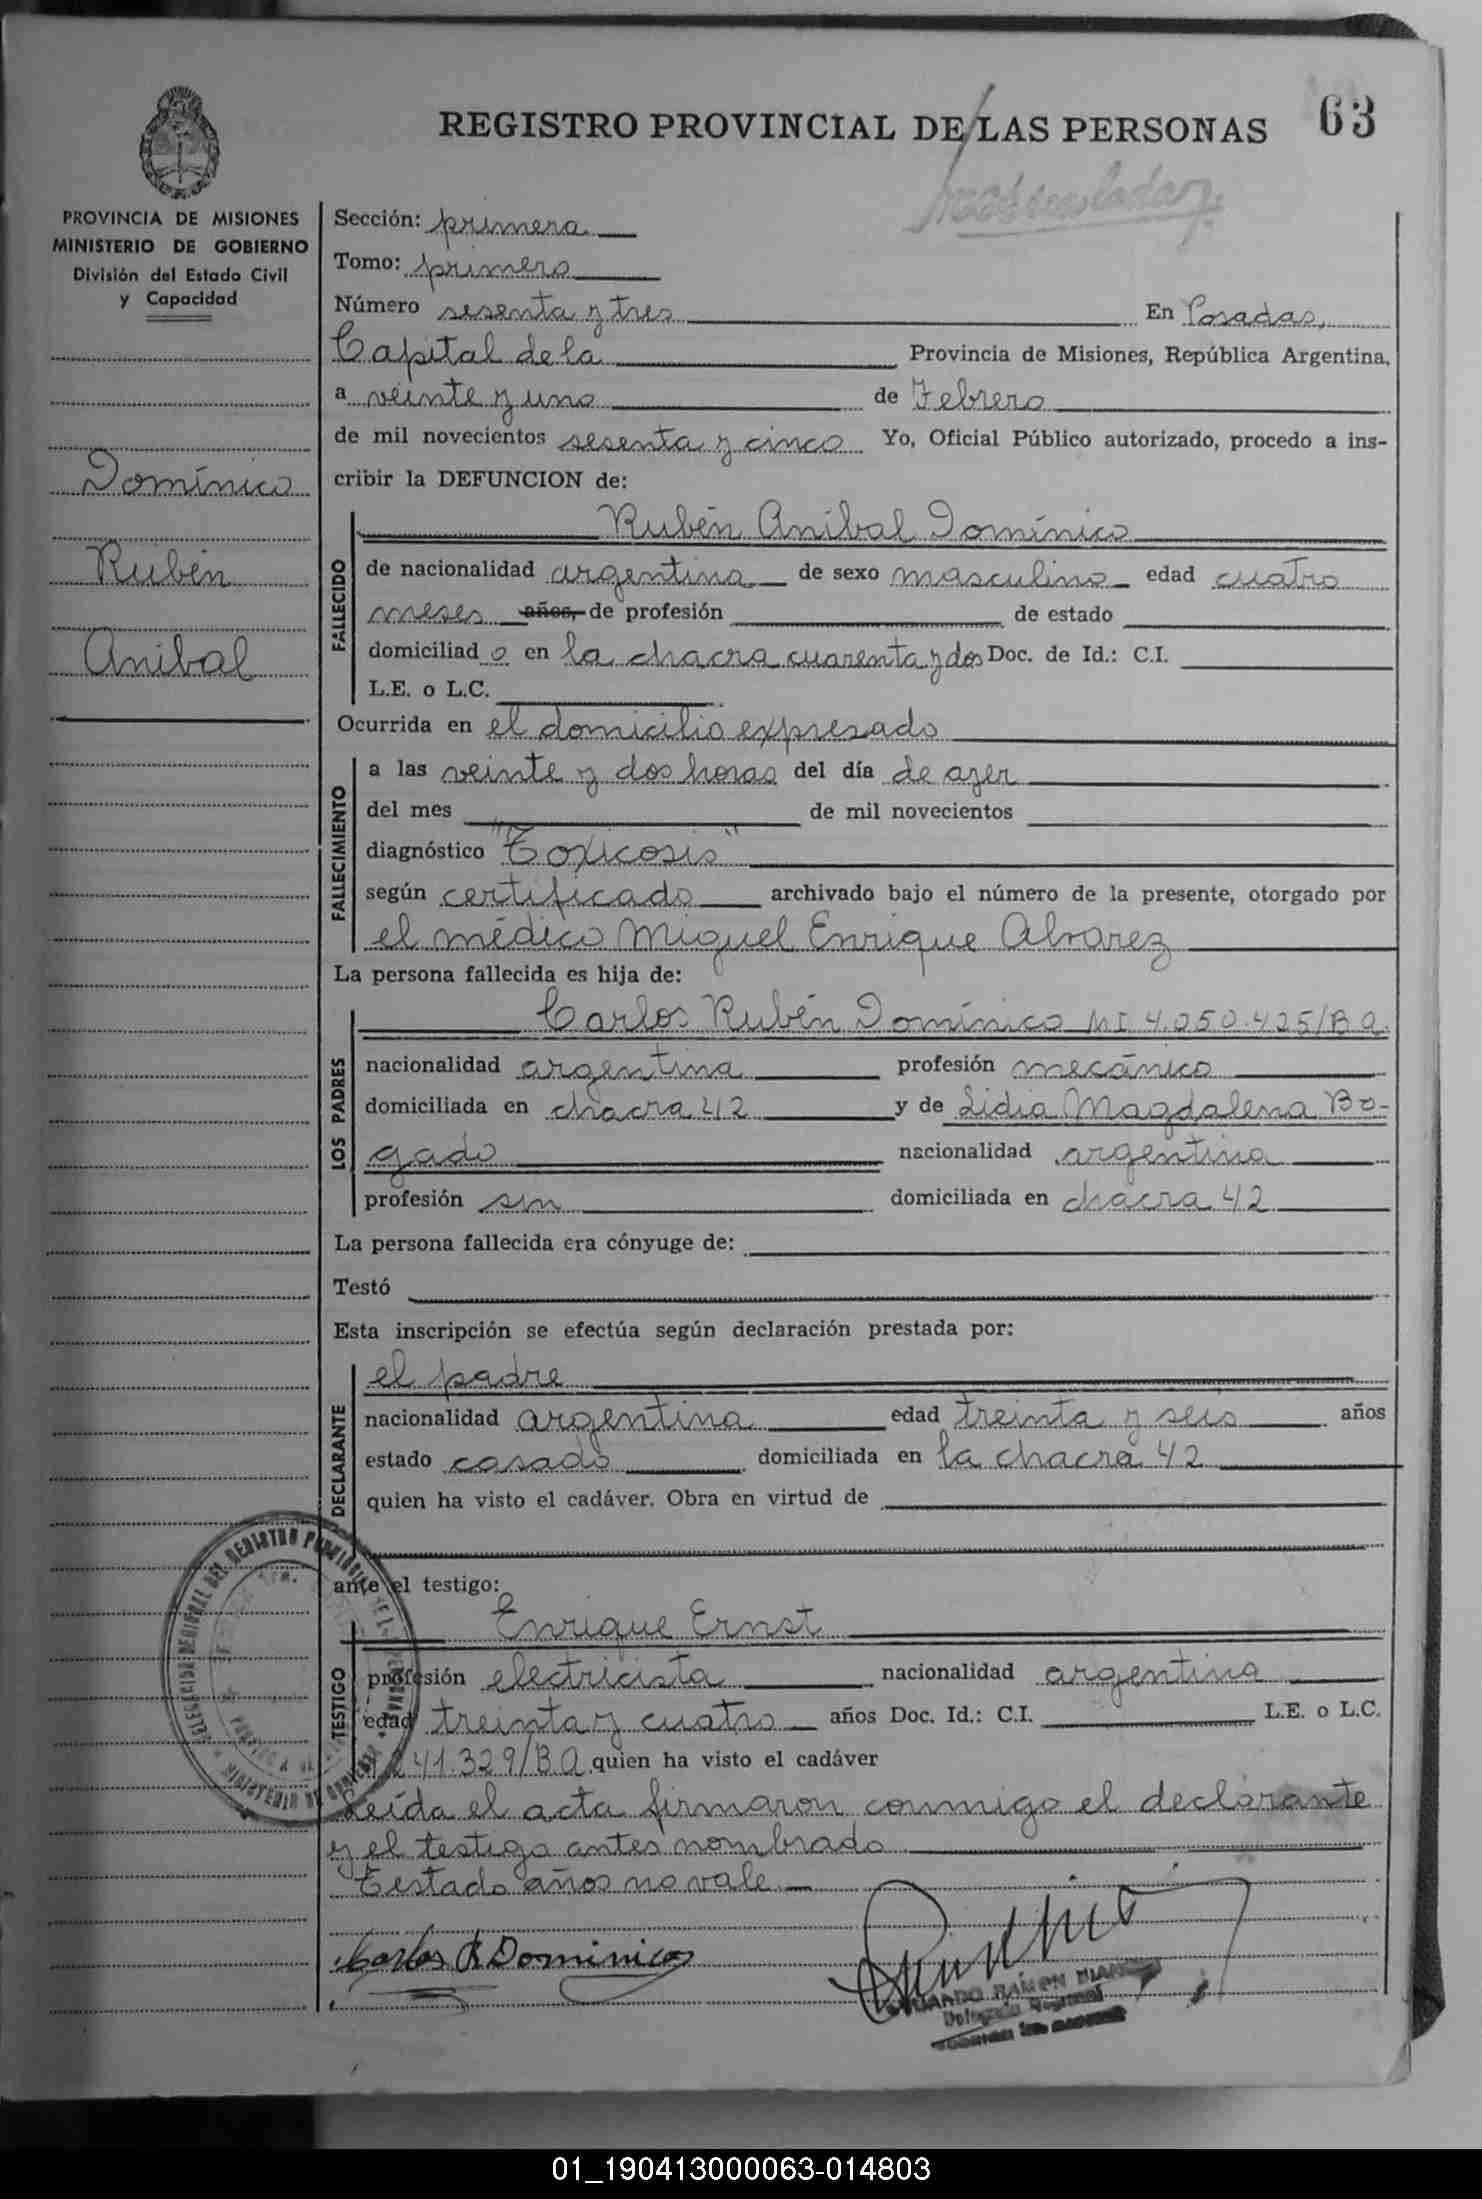 REGISTRO PROVINCIAL DE LAS PERSONAS 63
PROVINCIA DE MISIONES
MINISTERIO DE GOBIERNO
División del Estado Civil
y Capacidad
Domínico
Rubén
Anibal
Sección: primera
Tomo: primero
Número sesenta y tres En Posadas,
Capital de la Provincia de Misiones, República Argentina,
a veinte y uno de Febrero
de mil novecientos sesenta y cinco Yo, Oficial Público autorizado, procedo a ins-
cribir la DEFUNCION de:
FALLECIDO
Rubén Anibal Domínico
de nacionalidad argentina de sexo masculino edad cuatro
meses años, de profesión de estado
domiciliado en la chacra cuarenta y dos Doc. de Id.: C.I.
L.E. o L.C.
Ocurrida en el domicilio expresado
FALLECIMIENTO
a las veinte y dos horas del día de ayer
del mes de mil novecientos
diagnóstico "Toxicosis"
según certificado archivado bajo el número de la presente, otorgado por
el médico Miguel Enrique Alvarez
La persona fallecida es hija de:
LOS PADRES
Carlos Rubén Domínico MI 4.050.425/BA
nacionalidad argentina profesión mecánico
domiciliada en chacra 42 y de Lidia Magdalena Bo-
gado nacionalidad argentina
profesión sin domiciliada en chacra 42
La persona fallecida era cónyuge de:
Testó
Esta inscripción se efectúa según declaración prestada por:
DECLARANTE
el padre
nacionalidad argentina edad treinta y seis años
estado casado domiciliada en la chacra 42
quien ha visto el cadáver. Obra en virtud de
ante el testigo:
TESTIGO
Enrique Ernst
profesión electricista nacionalidad argentina
edad treinta y cuatro años Doc. Id.: C.I. L.E. o L.C.
241.329/BA quien ha visto el cadáver
Leída el acta firmaron conmigo el declarante
y el testigo antes nombrado
Testado años no vale
Carlos R Dominico
RAMON
Delegado Regional
01_190413000063-014803